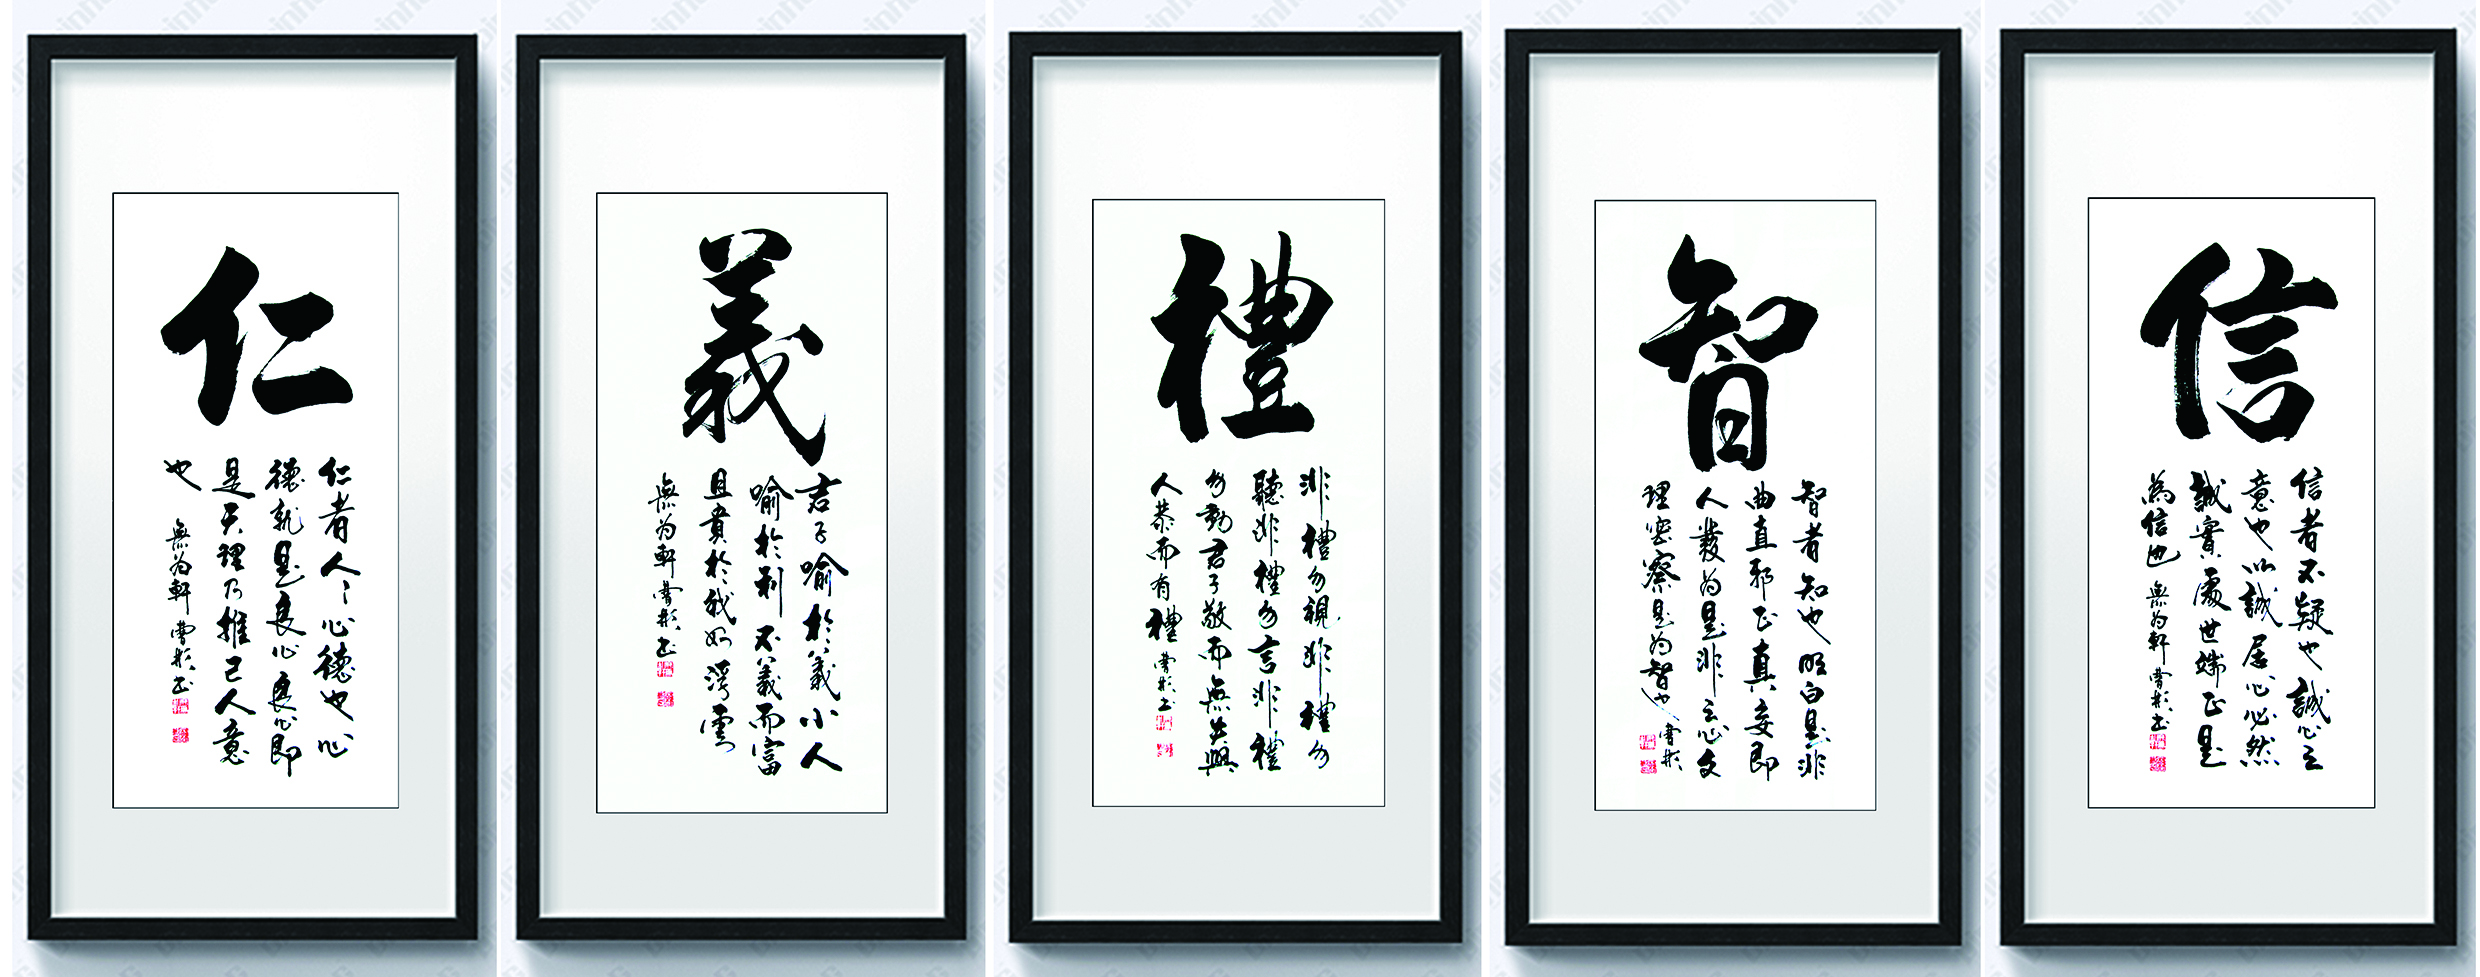 仁
仁者人々心德也心
德就是良心良心即
是天理乃推己人意
也 無为軒 曹彬书
義
君子喻於義小人
喻於利不義而富
且貴於我如浮雲
無为軒曹彬书
禮
非禮勿視非禮勿
聽非禮勿言非禮
勿動君子敬而無失與
人恭而有禮 曹彬书
智
智者知也明白是非
曲直邪正真妄即
人發为是非之心文
理密察是为智也 曹彬
信
信者不疑也誠心之
意也以誠居心必然
誠實處世端正是
為信也 無为軒曹彬书